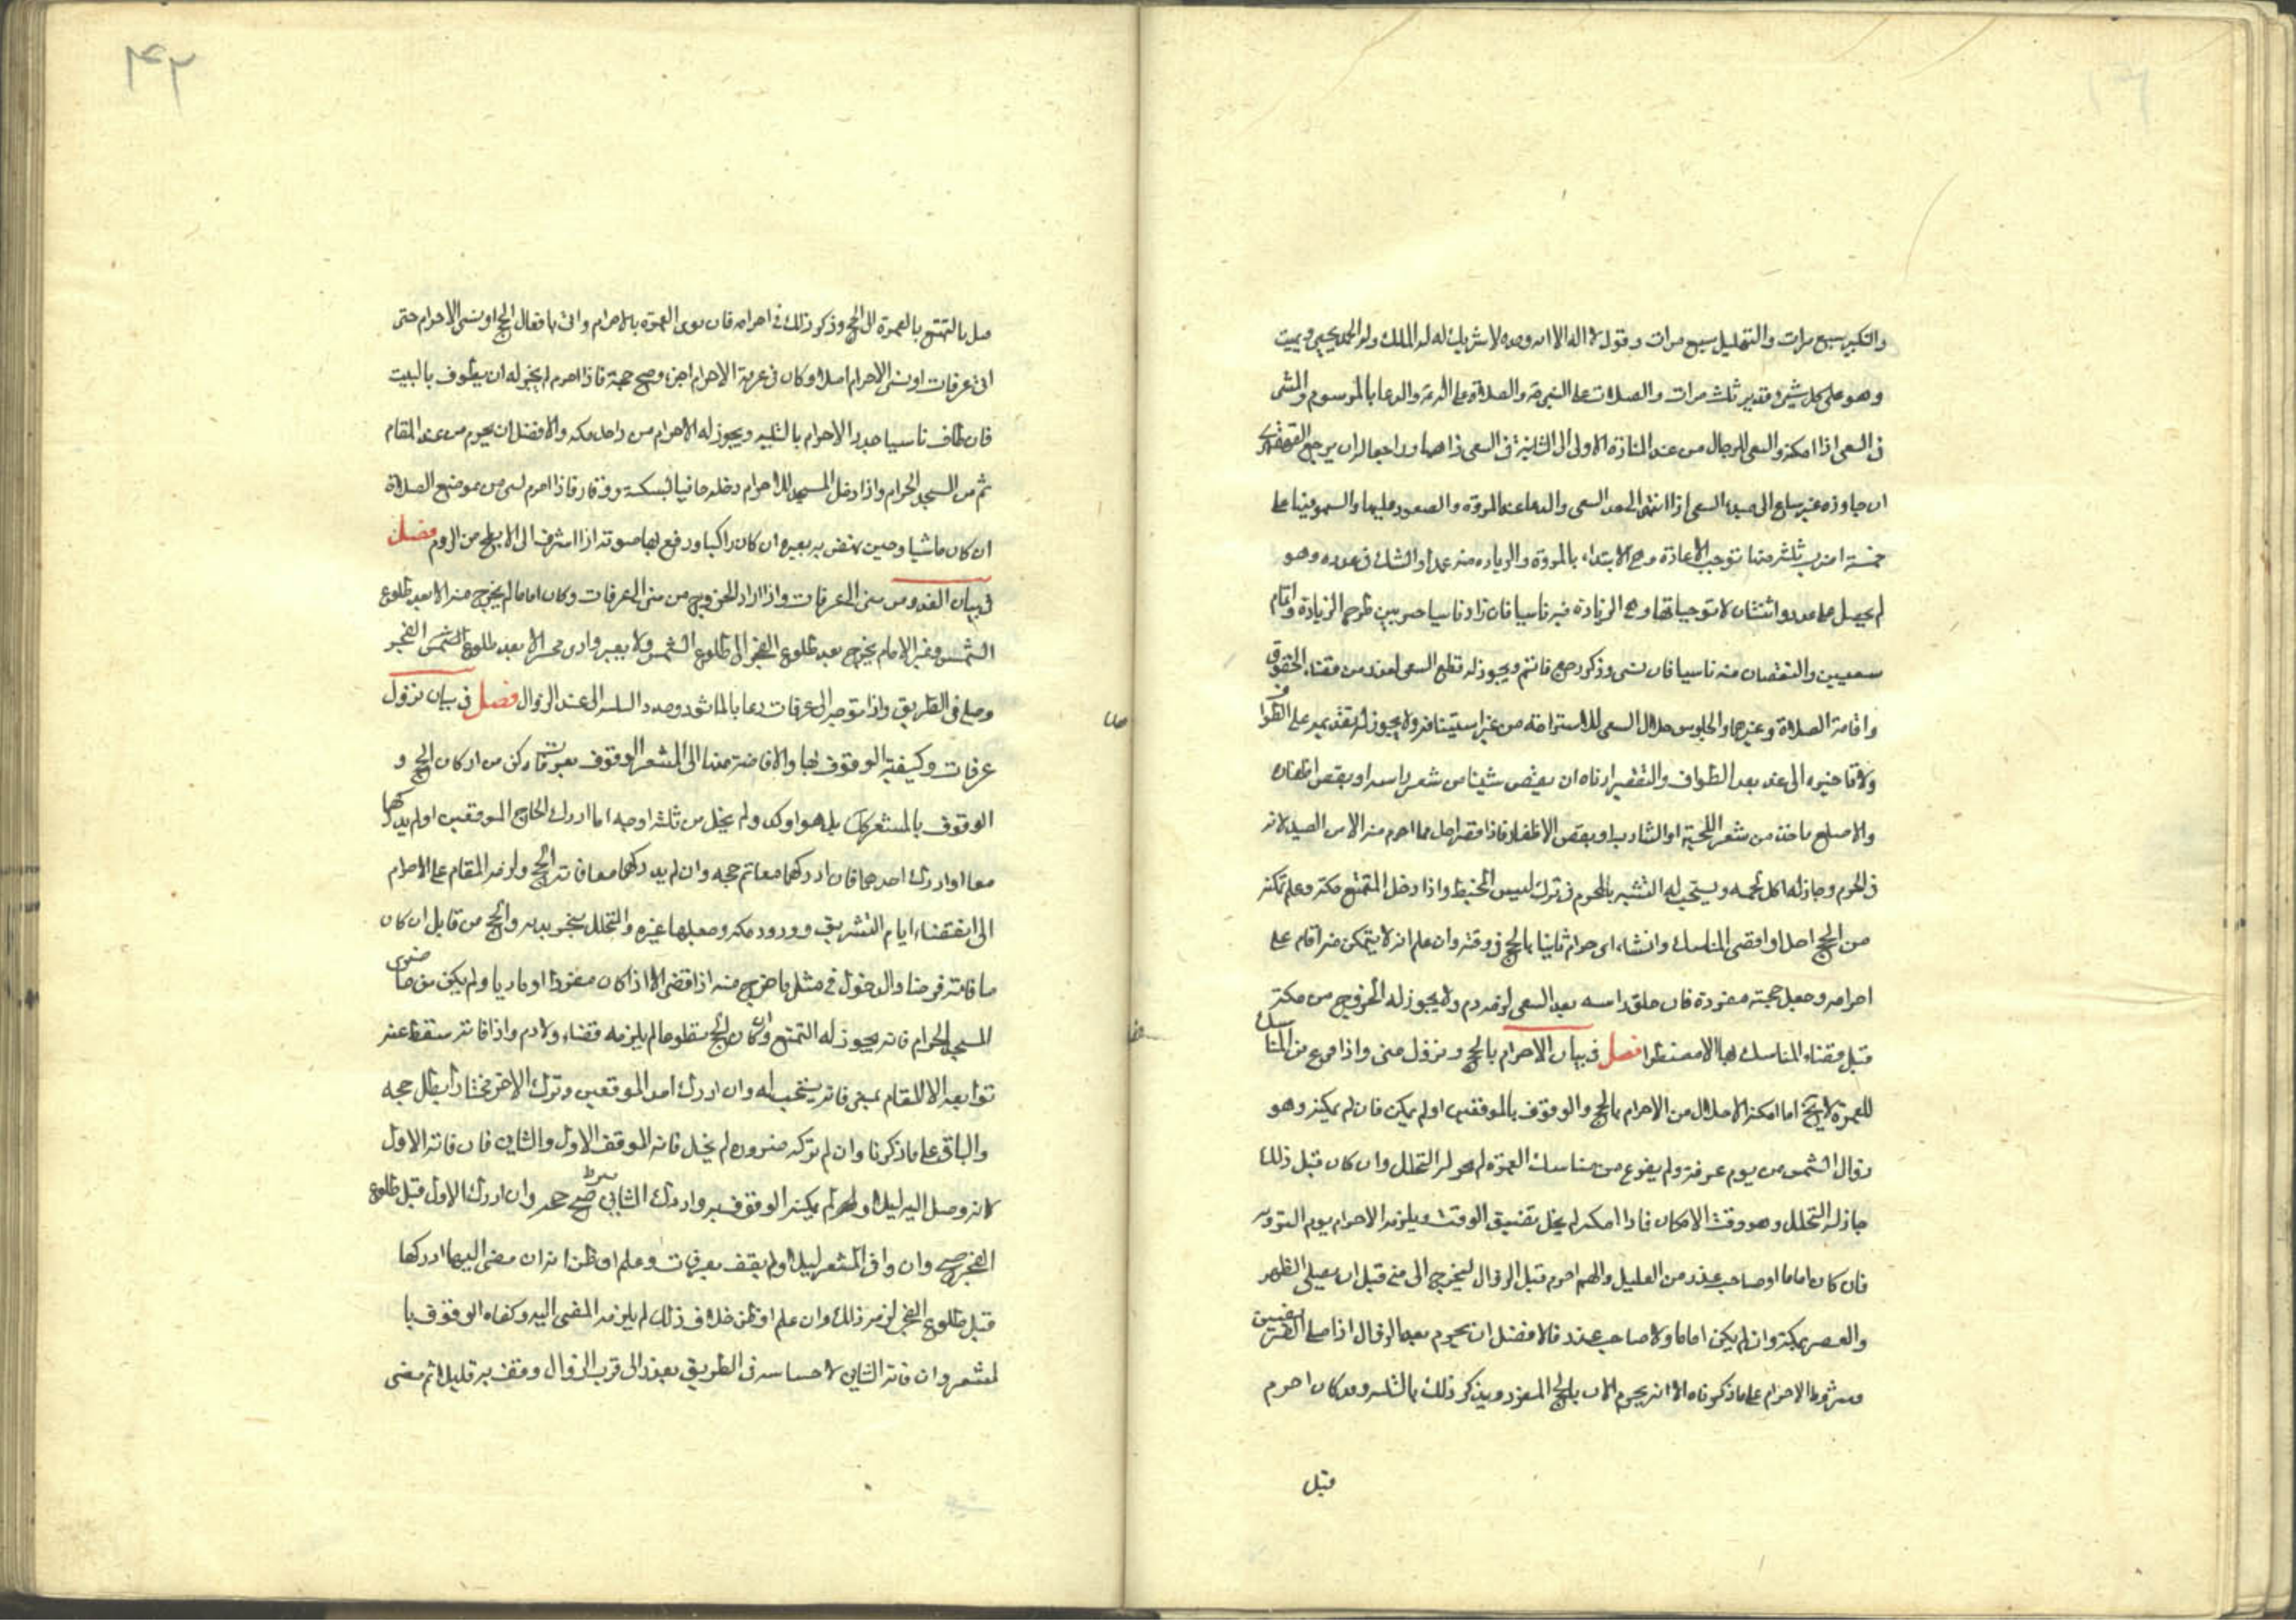 والتكبير سبع مرات والتهليل سبع مرات وقول لا اله الا الله وحده لا شريك له له الملك وله الحمد يحيي ويميت
وهو على كل شيء قدير ثلث مرات والصلاة على النبي والصلاة على اله والدعا بالمرسوم والمشي
في السعي اذا امكنه والسعي للرجال من عند المنارة الاولى الى الثانية في السعي ذاهبا وراجعا لان يرجع القهقرى
ان جاوزه غير بالغ الى السعي اذا انتهى الى حد السعي والدعا عند المروة والصعود عليها والسهو فيها على
خمسة اضرب ثلثة منها توجب الاعادة وهي الابتداء بالمروة والزيادة فيه عمدا والشك في عدده وهو
لم يحصل عددا واثنتان لا توجبانها وهي الزيادة فيه ناسيا فان زاد ناسيا طرح الزيادة واتمام
سعيين والنقصان منه ناسيا فان نسي وذكر رجع فاتم ويجوز له قطع السعي لعذر من قضاء الحقوق
واقامة الصلاة وغيرهما والجلوس خلال السعي للاستراحة من غير استيناف ولا يجوز له تقديمه على الطواف
ولا تاخيره الى غد بعد الطواف والتقصير ادناه ان يقص شيئا من شعر راسه او يقص اظفاره
والاصلع ياخذ من شعر اللحية او الشارب او يقص الاظفار فاذا قصر احل مما احرم منه الا من الصيد لانه
في الحرم وجاز له اكل لحمه ويستحب له التشبه بالمحرم في ترك لبس المخيط واذا دخل المتمتع مكة وعلم تمكنه
من الحج احل اذا قضى المناسك وانشاء احرام ثانيا بالحج في وقته وان علم انه لا يتمكن منه اقام على
احرامه وجعل حجته مفردة فان حلق راسه بعد السعي لزمه دم ولا يجوز له الخروج من مكة
قبل قضاء المناسك لها الا مضطرا فصل في بيان الاحرام بالحج ونزول منى واذا فرغ من المناسك
للعمرة لا يخ اما امكنه الاحلال من الاحرام بالحج والوقوف بالموقفين او لم يمكن فان لم يمكنه وهو
زوال الشمس من يوم عرفة ولم يفرغ من مناسك العمرة لم يجز له التحلل وان كان قبل ذلك
جاز له التحلل وهو وقت الامكان فاذا امكنه لم يخل بتضييق الوقت ويلزمه الاحرام يوم التروية
فان كان اماما او صاحب عذر من العليل والهم احرم قبل الزوال ليخرج الى منى قبل ان يصلي الظهر
والعصر بمكة وان لم يكن اماما ولا صاحب عذر فالافضل ان يحرم بعد الزوال اذا صلى الفريضتين
وشروط الاحرام على ما ذكرناه الا انه يحرم الان بالحج المفرد ويذكر ذلك بالتلبية وقد كان احرم
قبل
٤٢
قبل بالتمتع بالعمرة الى الحج وذكر ذلك في احرامه فان نوى العمرة بالاحرام واتى بافعال الحج او نسي الاحرام حتى
اتى عرفات او نسي الاحرام اصلا وكان في عزمه الاحرام اجزا وصح حجة فاذا احرم لم يجز له ان يطوف بالبيت
فان طاف ناسيا جدد الاحرام بالتلبية ويجوز له الاحرام من داخل مكة والافضل ان يحرم من عند المقام
ثم من المسجد الحرام واذا دخل المسجد للاحرام دخله حافيا بسكينة ووقار فاذا احرم لبى من موضع الصلاة
ان كان ماشيا وحين نهض به بعيره ان كان راكبا ورفع بها صوته اذا اشرف الى الابطح من الروم فصل
في بيان الغدو من منى الى عرفات واذا اراد الخروج من منى الى عرفات وكان اماما لم يخرج منه الا بعد طلوع
الشمس وغير الامام يخرج بعد طلوع الفجر الى طلوع الشمس ولا يعبر وادي محسر الا بعد طلوع الشمس الفجر
وصلى في الطريق واذا توجه الى عرفات دعا بالماثور ومدد التلبية الى عند الزوال فصل في بيان نزول
عرفات وكيفية الوقوف بها والافاضة منها الى المشعر الوقوف بعرفات ركن من اركان الحج و
الوقوف بالمشعر كك بل هو اوكد ولم يخل من ثلثة اوجه اما ادرك الحاج الموقفين او لم يدركها
معا او ادرك احدهما فان ادركهما معا تم حجه وان لم يدركهما معا فاته الحج ولزمه المقام على الاحرام
الى انقضاء ايام التشريق وورود مكة وجعلها عمرة والتحلل والحج من قابل ان كان
ما فاته فرضا والدخول في مثل ما خرج منه اذا قضى الا اذا كان مفردا او قارنا ولم يكن من حاضري
المسجد الحرام فانه يجوز له التمتع وان كان الحج تطوعا لم يلزمه قضاء ولا دم واذا فاته سقط عنه
توابعه الا المقام بمنى فانه يستحب له وان ادرك احد الموقفين وترك الاخر مختارا بطل حجه
والباقي على ما ذكرنا وان لم تركه ضرورة لم يخل فاته الموقف الاول والثاني فان فاته الاول
لانه وصل اليه ليلا ولم يمكنه الوقوف به وادرك الثاني صح حجه وان ادرك الاول قبل طلوع
الفجر صح وان وافى المشعر ليلا ولم يقف بعرفات وعلم او ظن انه ان مضى اليها ادركها
قبل طلوع الفجر لزمه ذلك وان علم او ظن خلاف ذلك لم يلزمه المضي اليه وكفاه الوقوف با
لمشعر وان فاته الثاني لاحتباسه في الطريق بعذر الى قرب الزوال وقف به قليلا ثم مضى